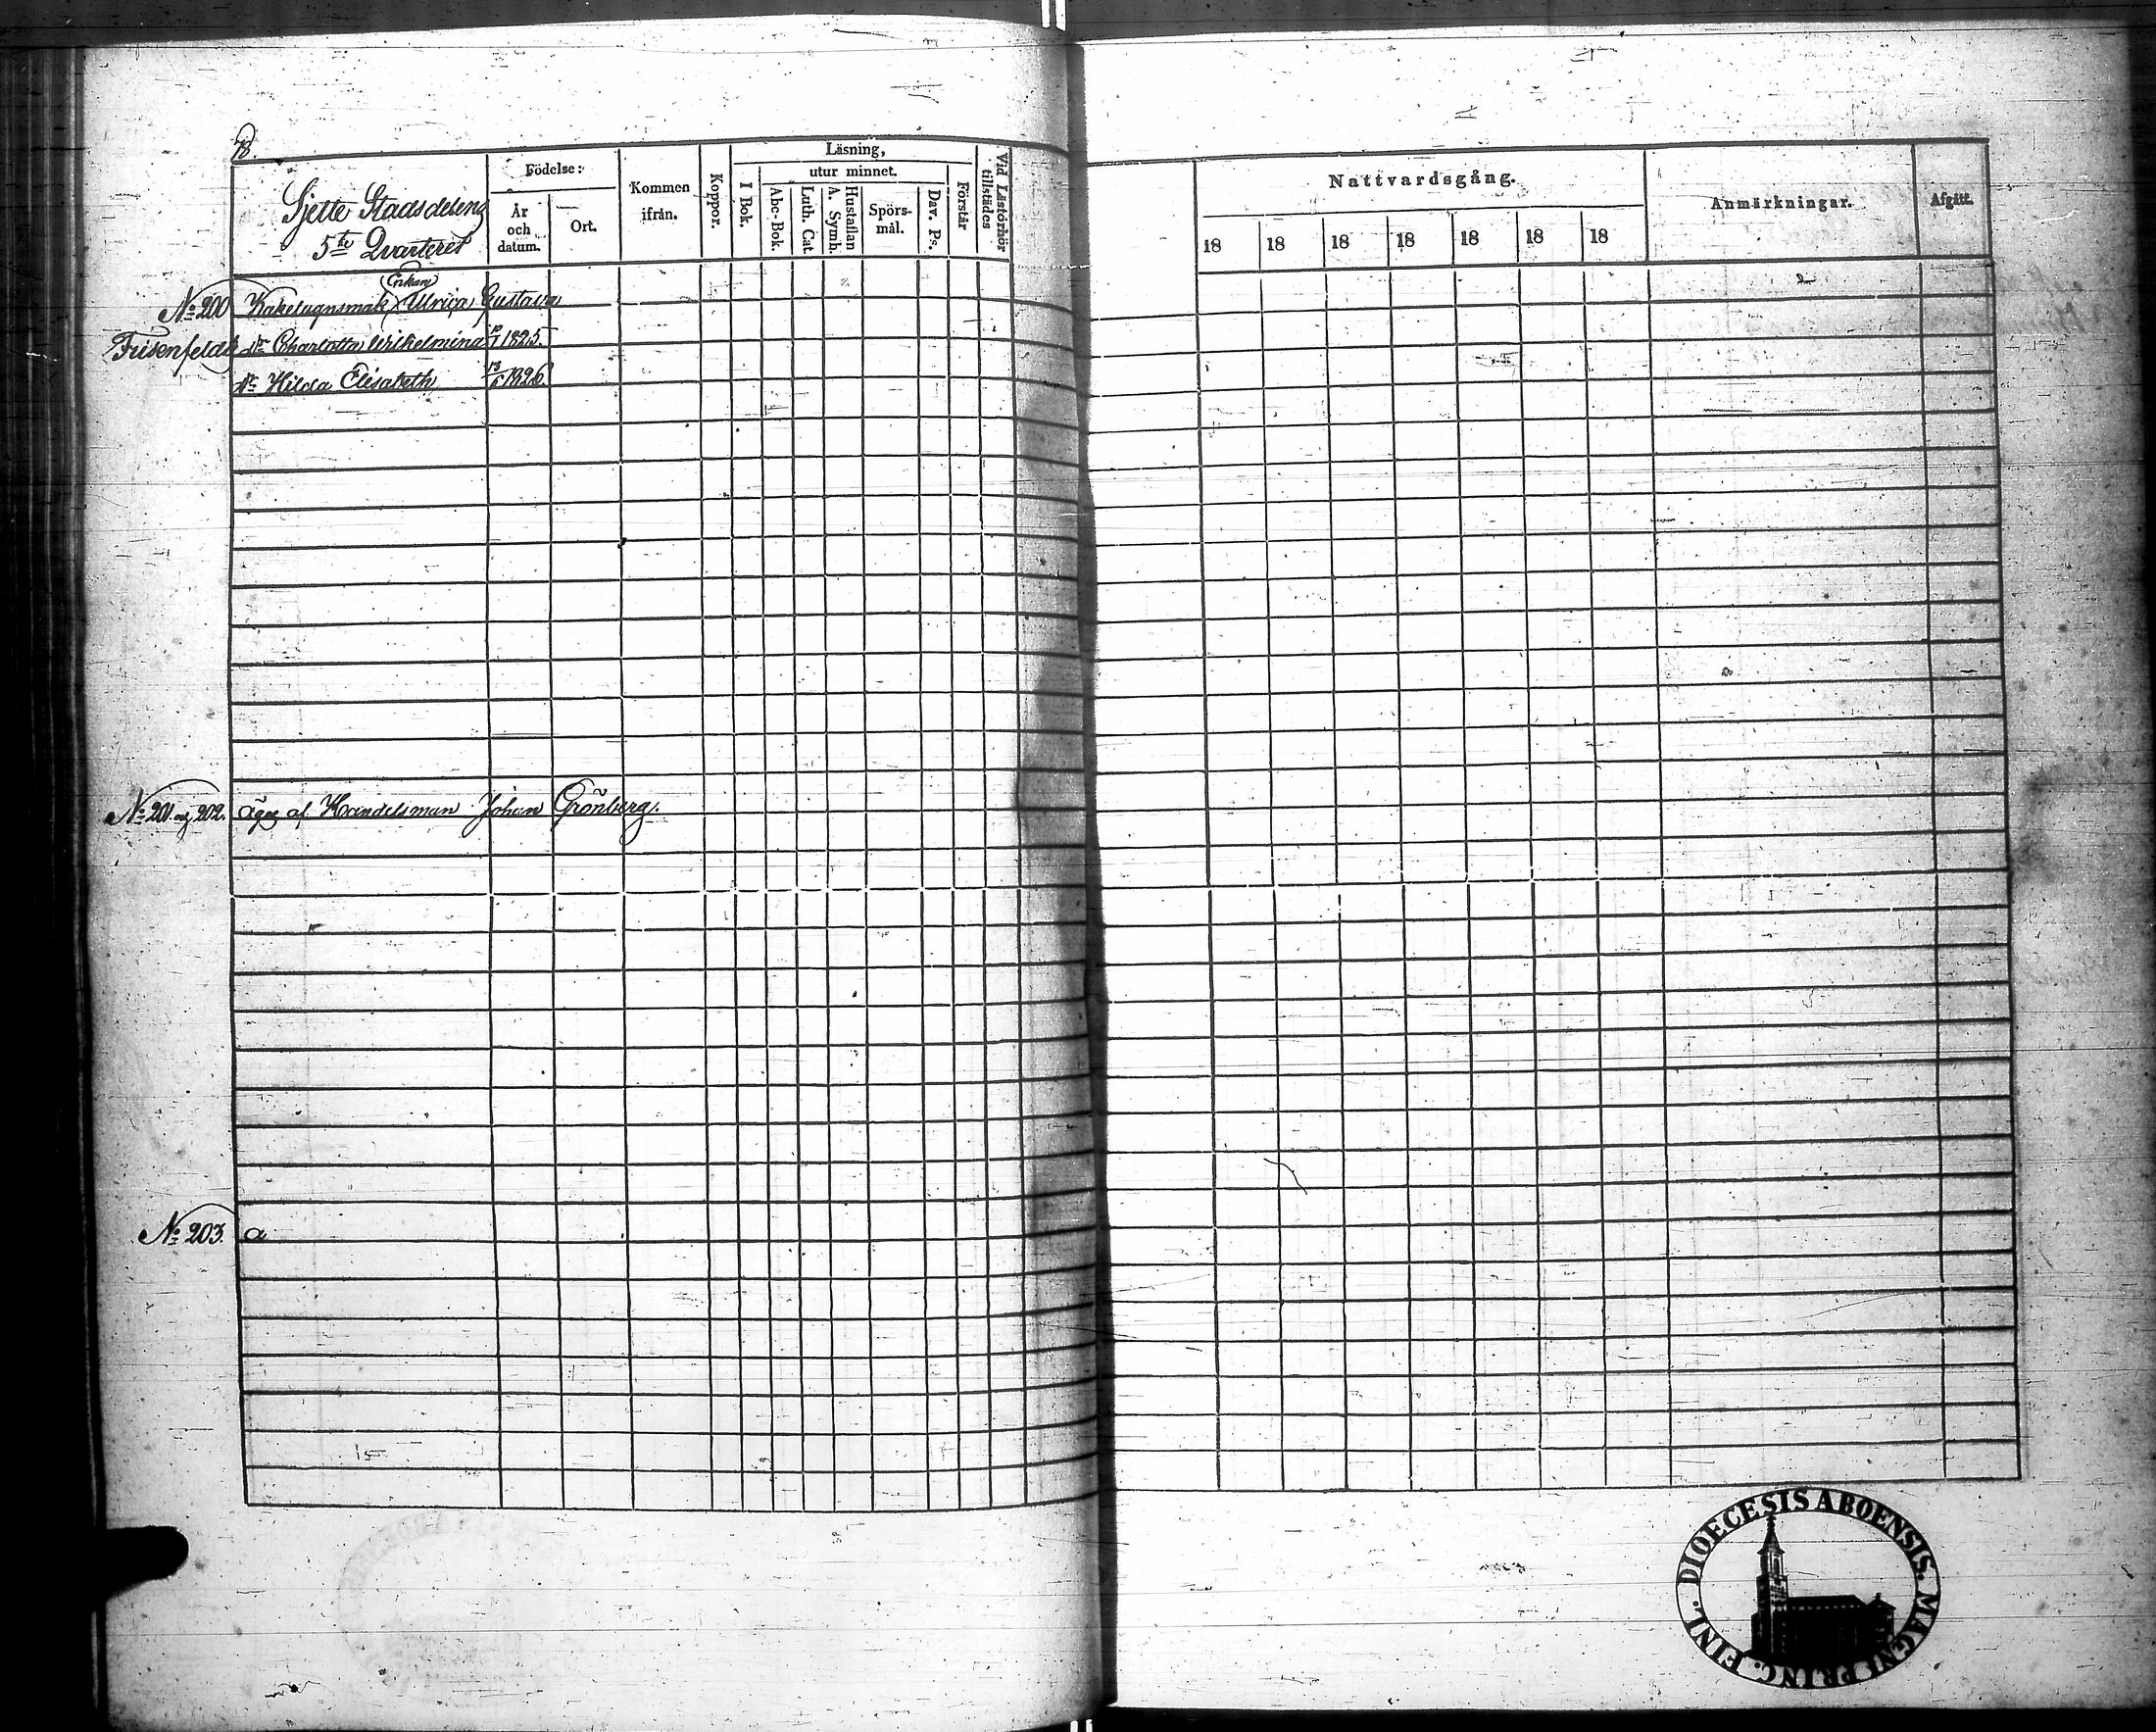 78.
Sjette Stadsdelens
5te Qvarteret
Födelse:
År
och
datum.
Ort.
Kommen
ifrån.
Koppor.
Läsning,
I Bok.
utur minnet.
Abc-Bok.
Luth. Cat
A. Symb.
Hustaflan
Spörs-
mål.
Dav. Ps.
Förstår
Vid Läsförhör
tillstädes
Nattvardsgång.
18 18 18 18 18 18 18
Anmärkningar.
Afgått.
Enkan
No 200 Kakelugnsmak. Ulrica Gustava
dr Charlotta Wilhelmina 1825.
dr Hilda Elisabeth 1826
No 201 och 202. äges af Handelsman Johan Grönberg.
No 203. a
DIOECESIS ABOENSIS. MAGNI PRINC. FINL.